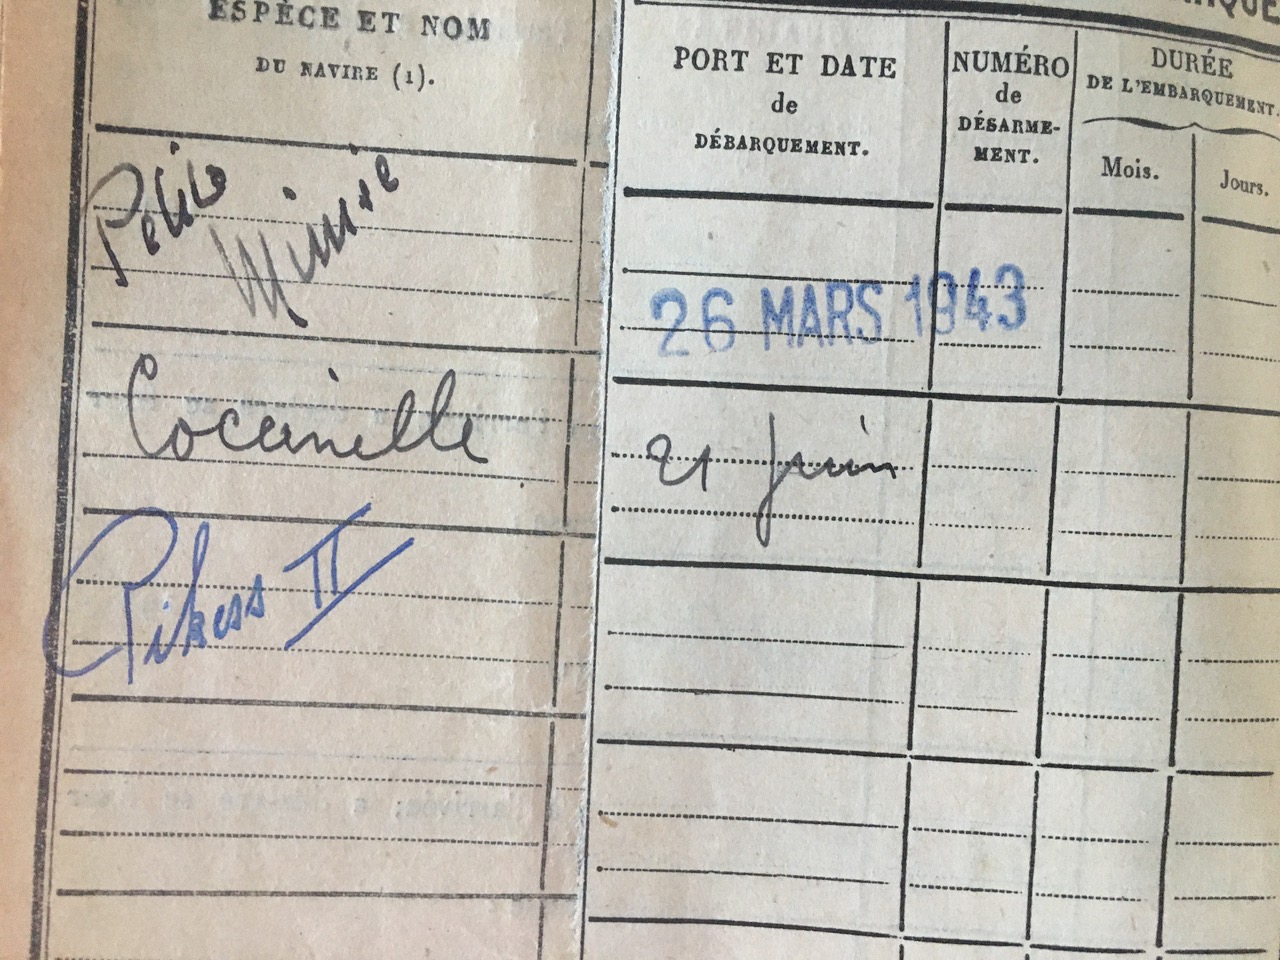 ESPÈCE ET NOM
DU NAVIRE (1).
Petite
Minnie
Coccinelle
II
PORT ET DATE
de
DÉBARQUEMENT.
NUMÉRO
de
DÉSARME-
MENT.
DURÉE
DE L'EMBARQUEMENT.
Mois.
Jours.
26 MARS 1943
21 Juin